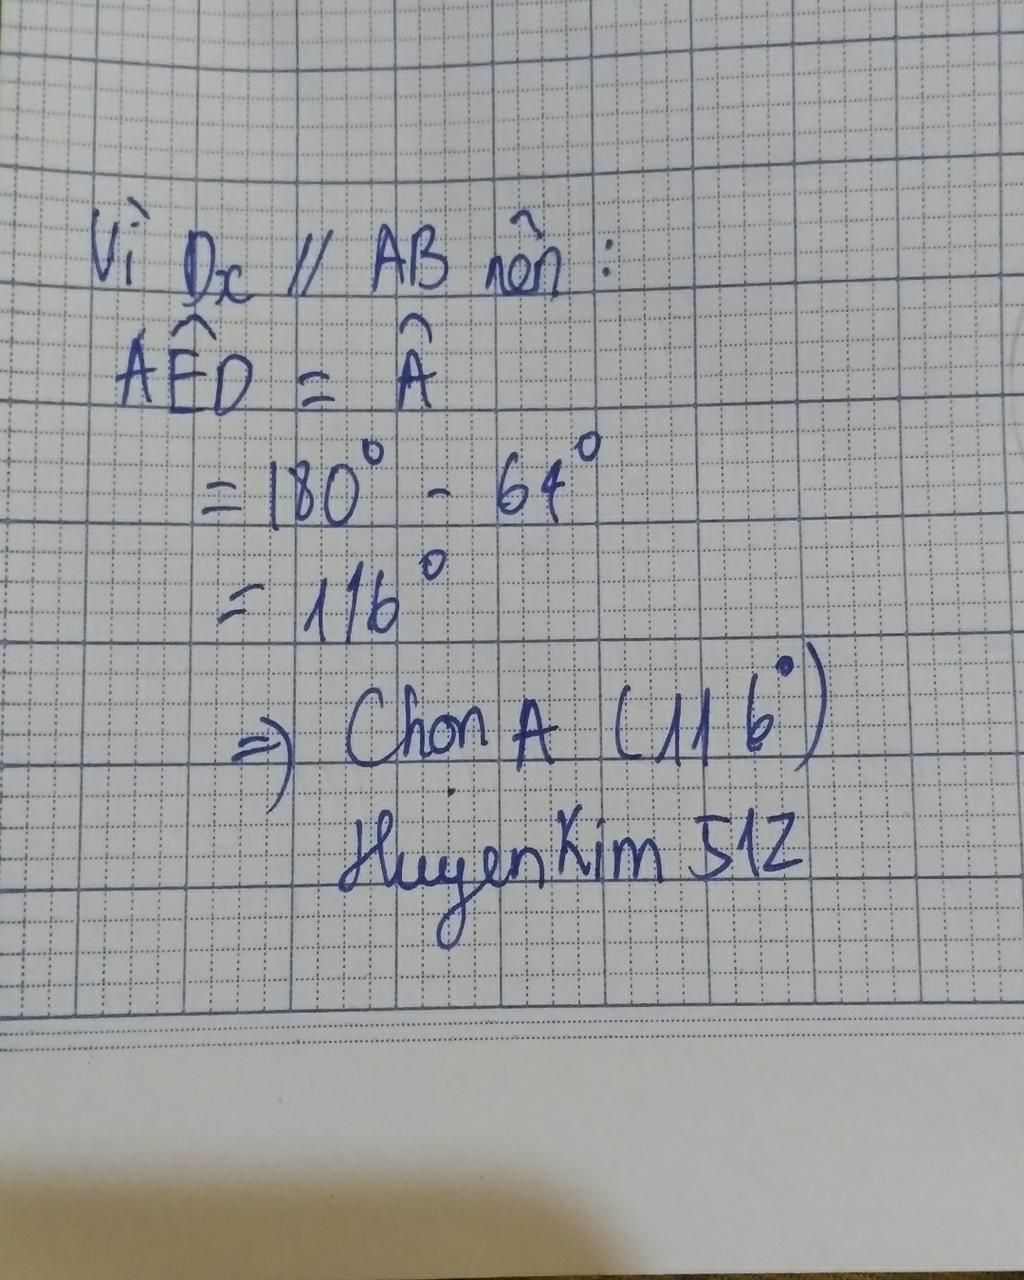 Vì Dx // AB nên :
AÊD = Â
= 180° - 64°
= 116°
=> Chọn A (116°)
HuyenKim 512